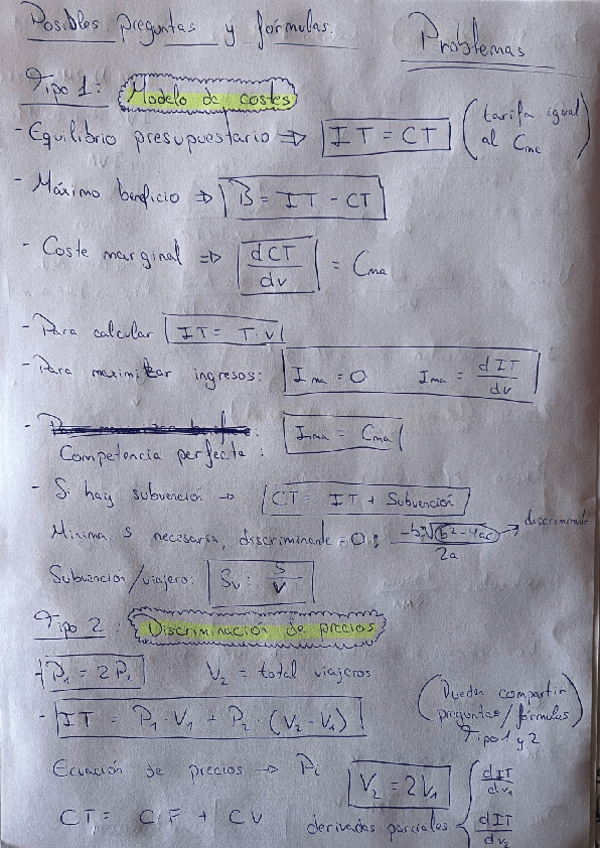 Posibles preguntas y fórmulas. Problemas
Tipo 1: Modelo de costes
- Equilibrio presupuestario => IT = CT (tarifa igual al Cme)
- Máximo beneficio => B = IT - CT
- Coste marginal => dCT/dv = Cma
- Para calcular IT = T·v
- Para maximizar ingresos: Ima = 0 Ima = dIT/dv
- Ima = Cma
Competencia perfecta:
- Si hay subvención -> CT = IT + Subvención
Mínima s necesaria, discriminante = 0; -b±√(b²-4ac)/2a -> discriminante
Subvención/viajero: Sv: S/V
Tipo 2: Discriminación de precios
- P₁ = 2P₂ V₂ = total viajeros
- IT = P₁·V₁ + P₂·(V₂-V₁) (Pueden compartir preguntas/fórmulas Tipo 1 y 2)
Ecuación de precios -> Pi V₂ = 2V₁
CT = CF + CV derivadas parciales { dIT/dv₁ dIT/dv₂